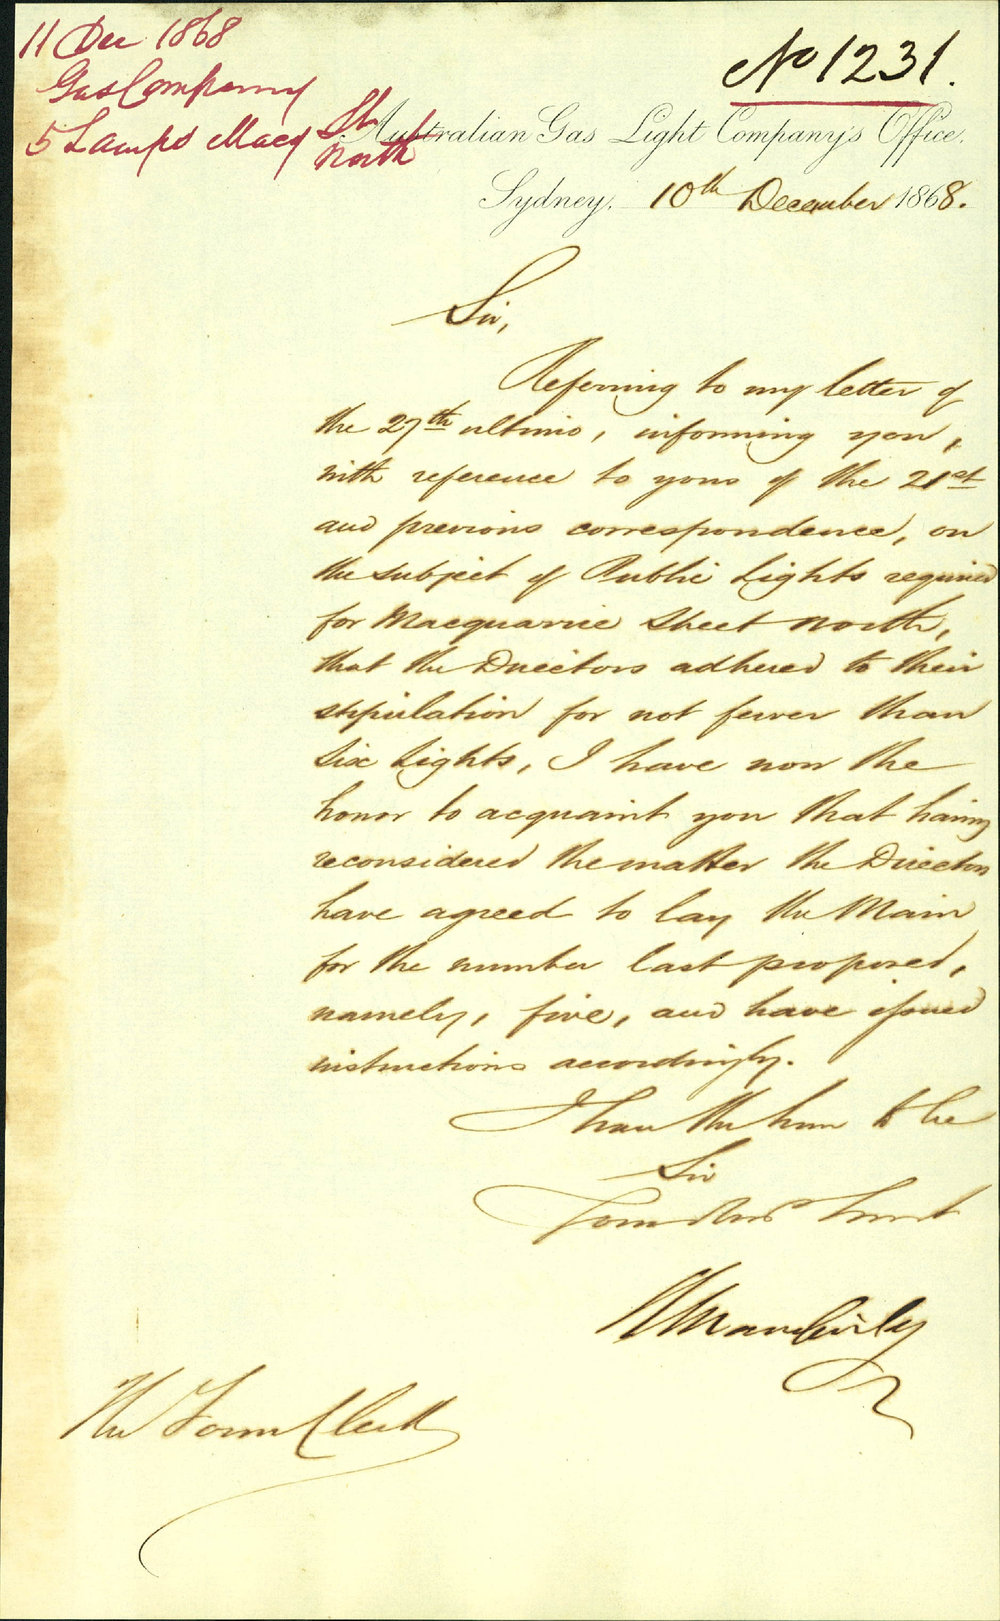 11 Dec 1868
Gas Company
5 Lamps Macq St
North
No 1231.
Australian Gas Light Company's Office.
Sydney, 10th December 1868.
Sir,
Referring to my letter of
the 27th ultimo, informing you,
with reference to yours of the 21st
and previous correspondence, on
the subject of Public Lights required
for Macquarie Street North,
that the Directors adhered to their
stipulation for not fewer than
six Lights, I have now the
honor to acquaint you that having
reconsidered the matter the Directors
have agreed to lay the Main
for the number last proposed,
namely, five, and have issued
instructions accordingly.
I have the honor to be
Sir
Your Obed Servt
The Town Clerk